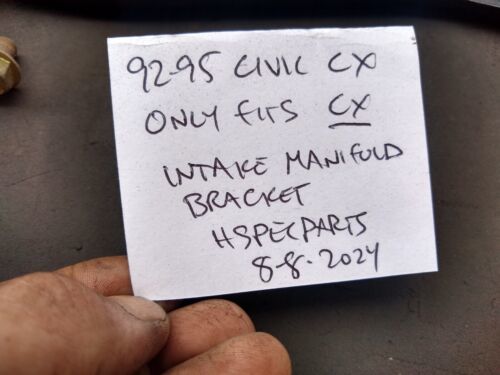 92-95 CIVIC CX
ONLY FITS CX
INTAKE MANIFOLD
BRACKET
HSPECPARTS
8-8-2024